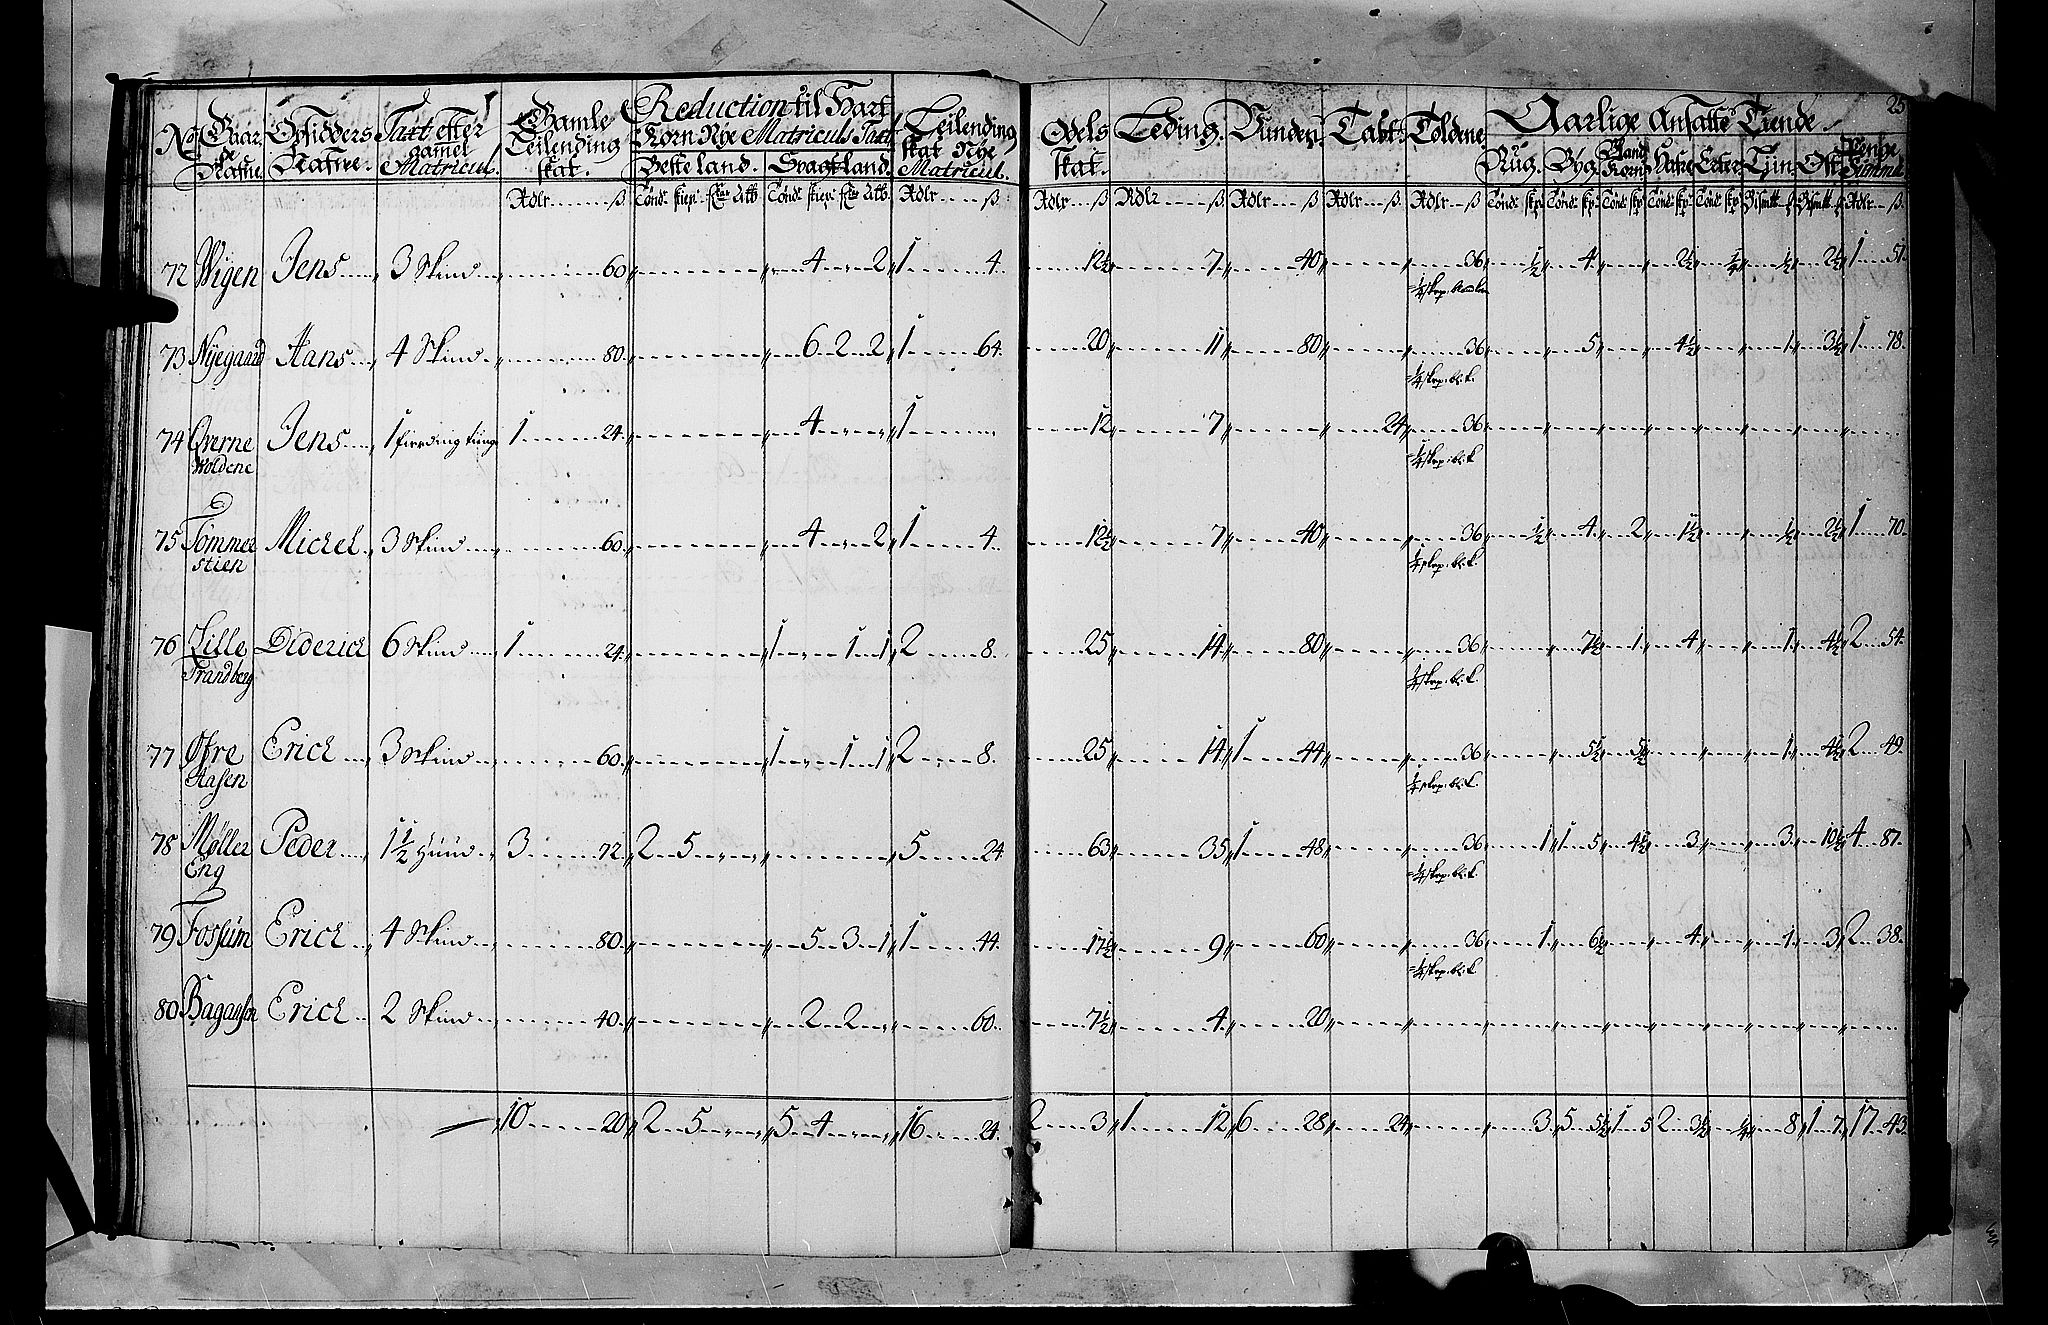 25
No Gaar Opsidders Taxt efter Gamle Reduction til Hart Leilending Odels Leding. Vunden. Tabt. Toldene Aarlige Ansatte Tiende
Nafne. Nafne. gamel Leilending Korn Nye Matriculs Taxt skat Nye skat. Rug. Byg. Bland Hafre Erter Tiin Ost Penge
Matricul. skat. Beste land. Svagest land. Matricul. Korn Summa
Rdlr ß Tønd: skiep: Rdlr ß Rdlr ß Rdlr ß Rdlr ß Rdlr ß Rdlr ß Tønd: skp: Rdlr ß
72 Wigen Jens 3 Skind 60 4 2 1 4 12½ 7 40 36 ½ 4 2½ ¼ ½ 2½ 1 51
¼ skp:
73 Nyegaard Hans 4 Skind 80 6 2 2 1 64 20 11 80 36 5 4½ 1 3½ 1 78
¼ skp: bl: k.
74 Øverne Jens 1 fierding tunge 1 24 4 1 12 7 24 36
Woldene ¼ skp: bl: k
75 Tommer Michel 3 Skind 60 4 2 1 4 12½ 7 40 36 ½ 4 2 1½ ½ 2½ 1 70
stien ¼ skp: bl: k.
76 Lille Diderich 6 Skind 1 24 1 1 1 2 8 25 14 80 36 7½ 1 4 1 4½ 2 54
Trandberg ¼ skp: bl: k.
77 Øfre Erich 3 Skind 60 1 1 1 2 8 25 14 1 44 36 5½ 5½ 1 4½ 2 49
Aasen ¼ skp: bl: k.
78 Møller Peder 1½ Huud 3 72 2 5 5 24 63 35 1 48 36 1 1 5 4½ 3 3 10½ 4 87
Eng ¼ skp: bl: k.
79 Fossum Erich 4 Skind 80 5 3 1 1 44 17½ 9 60 36 1 6½ 4 1 3 2 38
¼ skp: bl: k
80 Erich 2 Skind 40 2 2 60 7½ 4 20
10 20 2 5 5 4 16 24 2 3 1 12 6 28 24 3 5 5½ 1 5 2 3½ ¼ 8 1 7 17 43